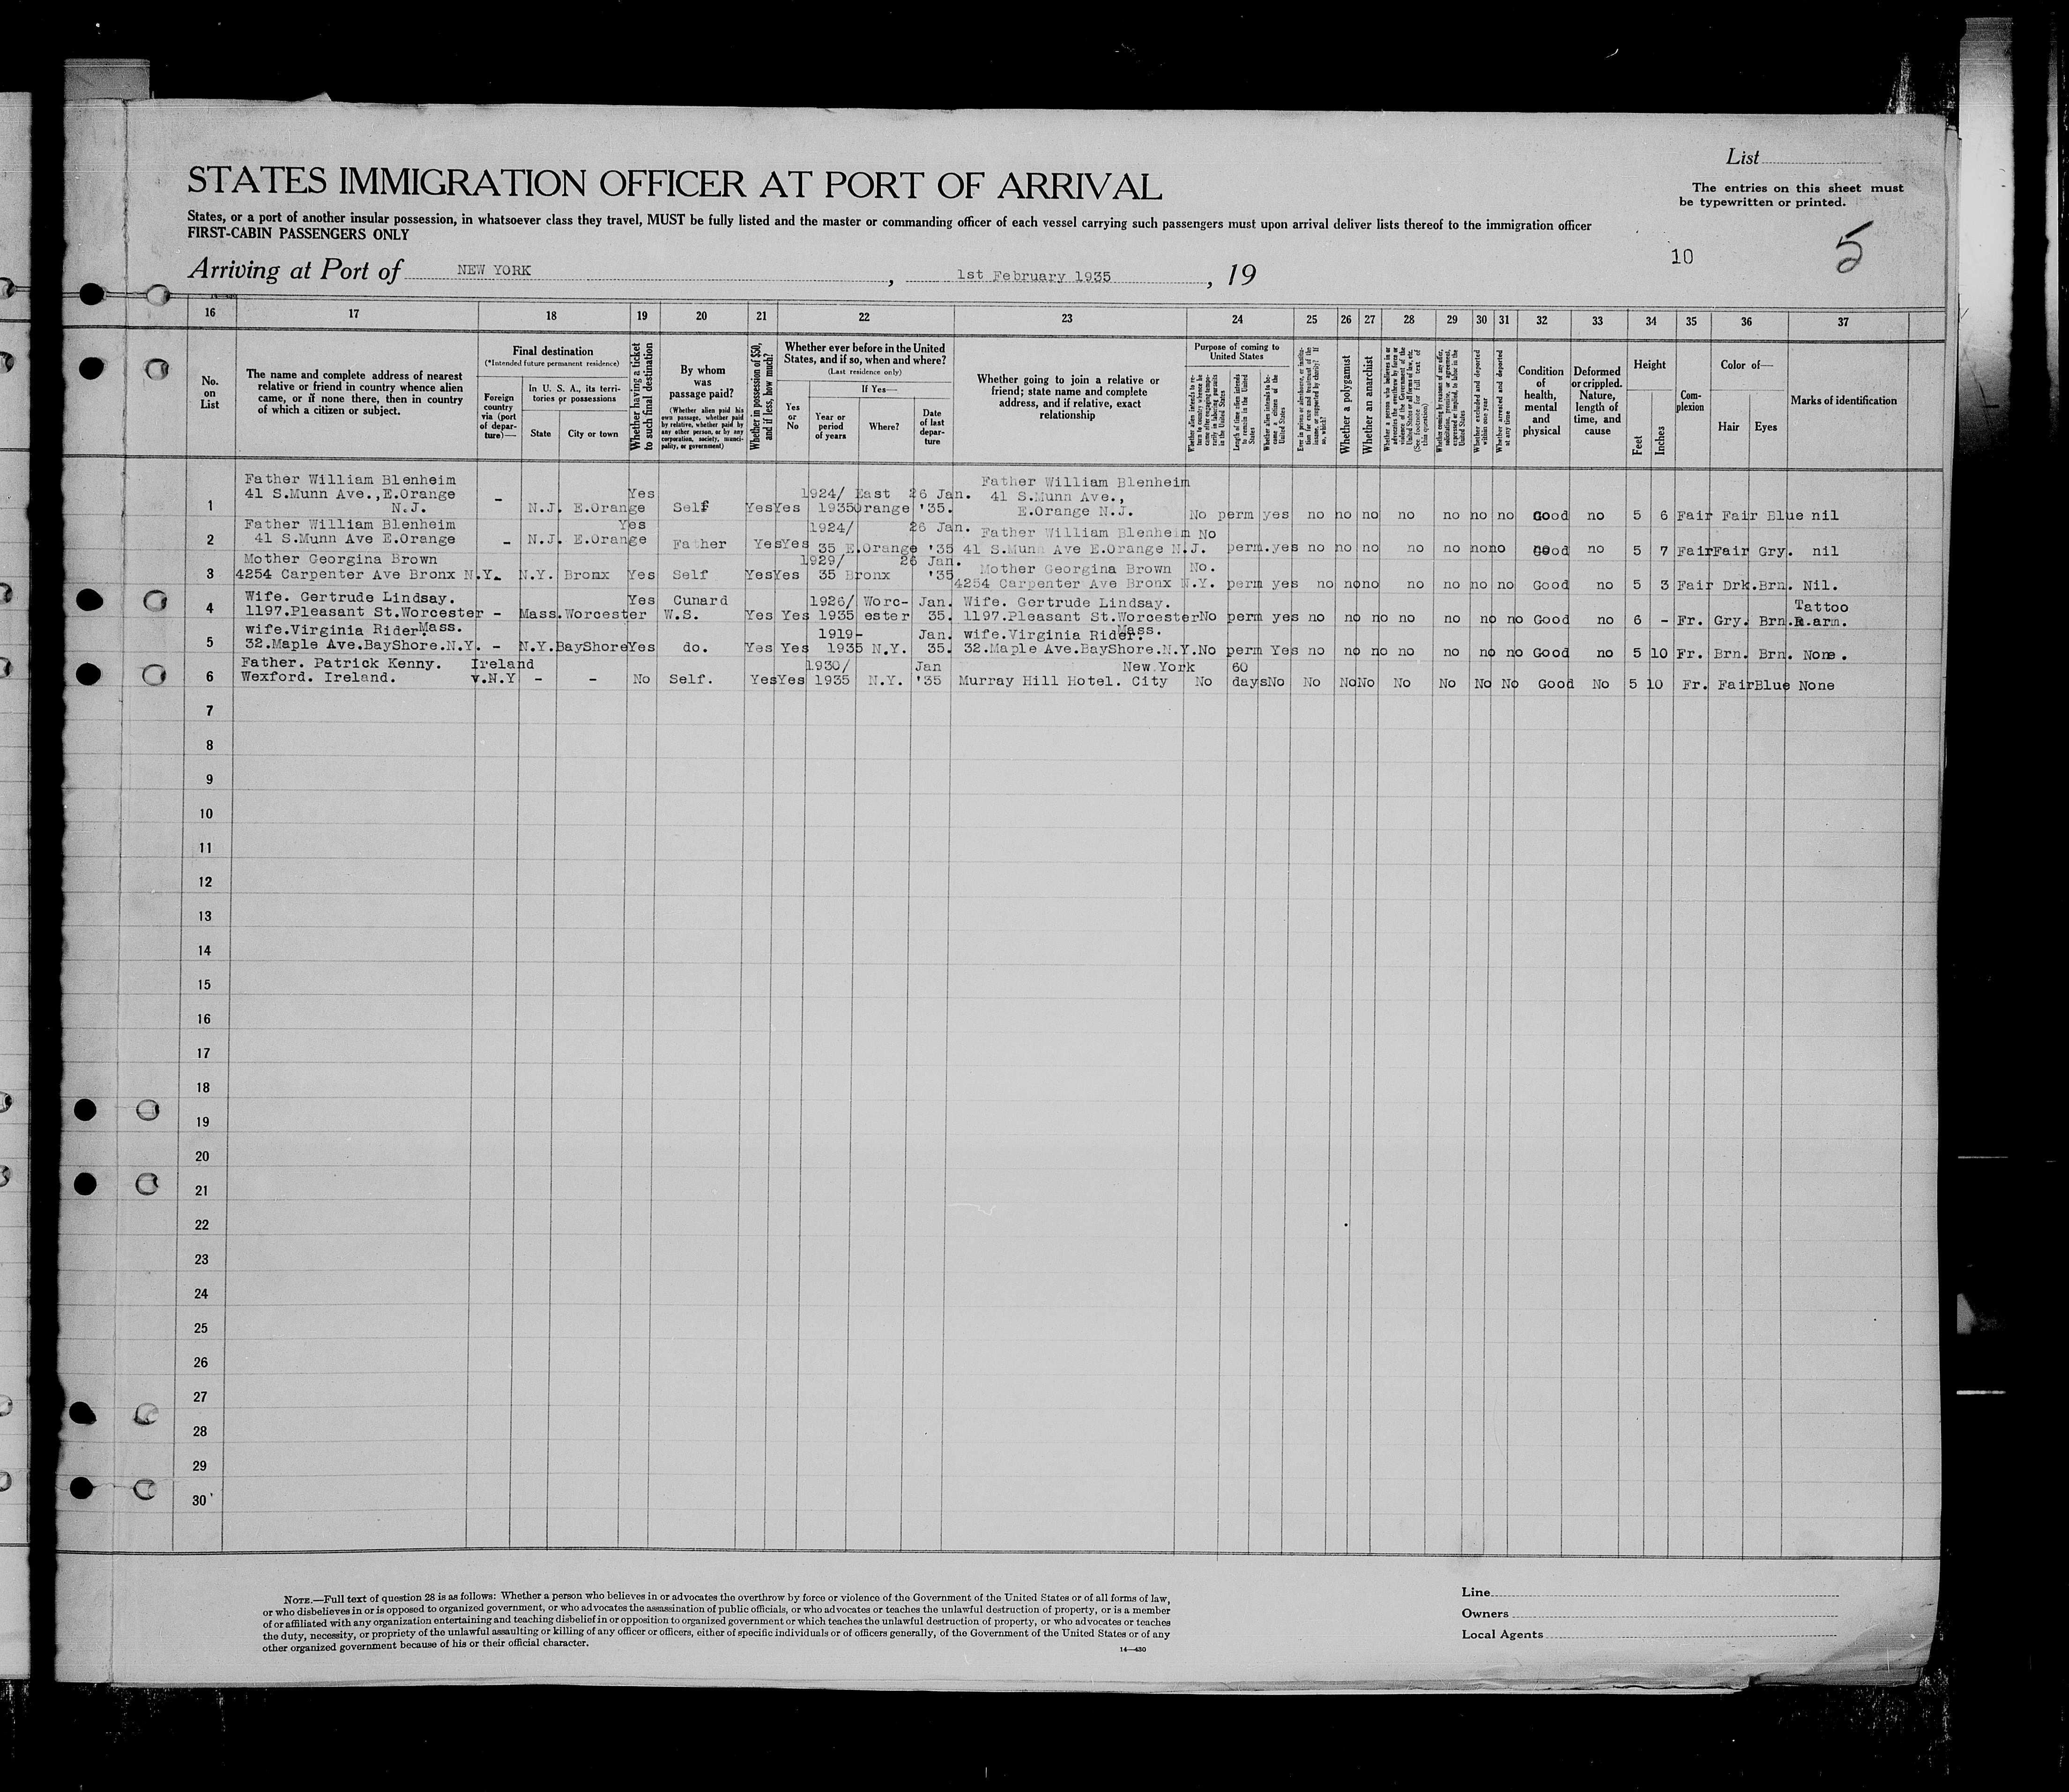 List
STATES IMMIGRATION OFFICER AT PORT OF ARRIVAL
The entries on this sheet must
be typewritten or printed.
States, or a port of another insular possession, in whatsoever class they travel, MUST be fully listed and the master or commanding officer of each vessel carrying such passengers must upon arrival deliver lists thereof to the immigration officer
FIRST-CABIN PASSENGERS ONLY
10 5
Arriving at Port of NEW YORK, 1st February 1935, 19
16 17 18 19 20 21 22 23 24 25 26 27 28 29 30 31 32 33 34 35 36 37
No.
on
List
The name and complete address of nearest
relative or friend in country whence alien
came, or if none there, then in country
of which a citizen or subject.
Final destination
(*Intended future permanent residence)
Foreign
country
via (port
of depar-
ture)—
In U. S. A., its terri-
tories or possessions
State City or town
Whether having a ticket
to such final destination
By whom
was
passage paid?
(Whether alien paid his
own passage, whether paid
by relative, whether paid by
any other person, or by any
corporation, society, munici-
pality, or government)
Whether in possession of $50,
and if less, how much?
Whether ever before in the United
States, and if so, when and where?
(Last residence only)
Yes
or
No
If Yes—
Year or
period
of years
Where?
Date
of last
depar-
ture
Whether going to join a relative or
friend; state name and complete
address, and if relative, exact
relationship
Purpose of coming to
United States
Whether alien intends to re-
turn to country whence he
came after engaging tempo-
rarily in laboring pursuits
in the United States
Length of time alien intends
to remain in the United
States
Whether alien intends to be-
come a citizen of the
United States
Ever in prison or almshouse, or institu-
tion for care and treatment of the
insane, or supported by charity? If
so, which?
Whether a polygamist
Whether an anarchist
Whether a person who believes in or
advocates the overthrow by force or
violence of the Government of the
United States or all forms of law, etc.
(See footnote for full text of
this question)
Whether coming by reason of any offer,
solicitation, promise, or agreement,
expressed or implied, to labor in the
United States
Whether excluded and deported
within one year
Whether arrested and deported
at any time
Condition
of
health,
mental
and
physical
Deformed
or crippled.
Nature,
length of
time, and
cause
Height
Feet
Inches
Com-
plexion
Color of—
Hair Eyes
Marks of identification
Father William Blenheim Father William Blenheim
41 S.Munn Ave.,E.Orange - Yes 1924/ East 26 Jan. 41 S.Munn Ave.,
1 N.J. N.J. E.Orange Self Yes Yes 1935 Orange '35. E.Orange N.J. No perm yes no no no no no no no Good no 5 6 Fair Fair Blue nil
Father William Blenheim Yes 1924/ 26 Jan. Father William Blenheim No
2 41 S.Munn Ave E.Orange - N.J. E.Orange Father Yes Yes 35 E.Orange '35 41 S.Munn Ave E.Orange N.J. perm. yes no no no no no no no Good no 5 7 Fair Fair Gry. nil
Mother Georgina Brown 1929/ 26 Jan. Mother Georgina Brown No.
3 4254 Carpenter Ave Bronx N.Y. - N.Y. Bronx Yes Self Yes Yes 35 Bronx '35 4254 Carpenter Ave Bronx N.Y. perm yes no no no no no no no Good no 5 3 Fair Drk. Brn. Nil.
Wife. Gertrude Lindsay. Yes Cunard 1926/ Worc- Jan. Wife. Gertrude Lindsay. Tattoo
4 1197.Pleasant St.Worcester - Mass. Worcester W.S. Yes Yes 1935 ester 35. 1197.Pleasant St.Worcester No perm yes no no no no no no no Good no 6 - Fr. Gry. Brn. R.arm.
Mass. Mass.
wife.Virginia Rider. 1919- Jan. wife.Virginia Rider.
5 32.Maple Ave.BayShore.N.Y. - N.Y. BayShore Yes do. Yes Yes 1935 N.Y. 35. 32.Maple Ave.BayShore.N.Y. No perm Yes no no no no no no no Good no 5 10 Fr. Brn. Brn. None.
Father. Patrick Kenny. Ireland 1930/ Jan New York 60
6 Wexford. Ireland. v.N.Y - - No Self. Yes Yes 1935 N.Y. '35 Murray Hill Hotel. City No days No No No No No No No No Good No 5 10 Fr. Fair Blue None
7
8
9
10
11
12
13
14
15
16
17
18
19
20
21
22
23
24
25
26
27
28
29
30
NOTE.—Full text of question 28 is as follows: Whether a person who believes in or advocates the overthrow by force or violence of the Government of the United States or of all forms of law,
or who disbelieves in or is opposed to organized government, or who advocates the assassination of public officials, or who advocates or teaches the unlawful destruction of property, or is a member
of or affiliated with any organization entertaining and teaching disbelief in or opposition to organized government or which teaches the unlawful destruction of property, or who advocates or teaches
the duty, necessity, or propriety of the unlawful assaulting or killing of any officer or officers, either of specific individuals or of officers generally, of the Government of the United States or of any
other organized government because of his or their official character.
14—430
Line
Owners
Local Agents